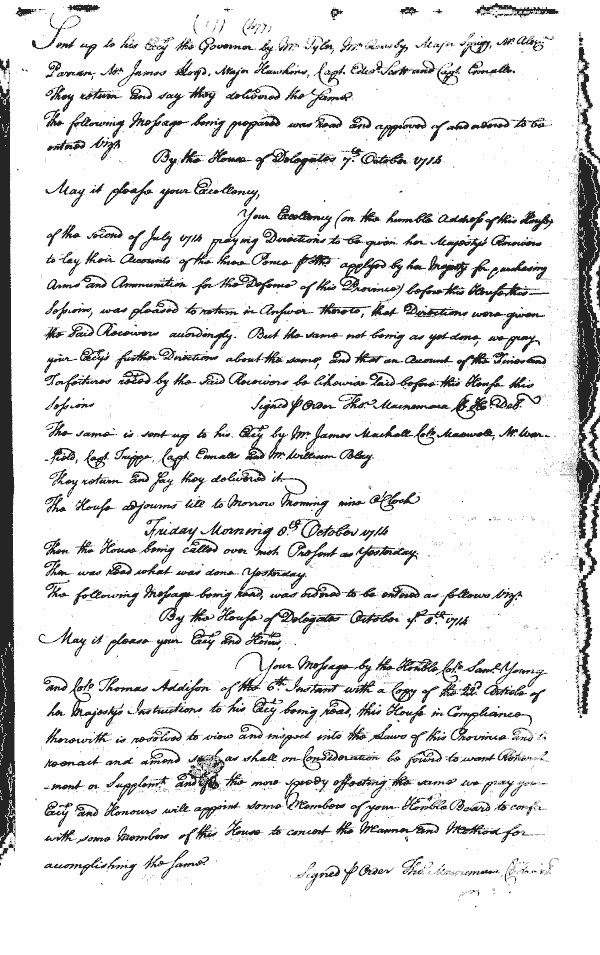 Sent up to his Excy the Governor by Mr Tyler, Mr Major Spigg, Mr Alexr
Parran, Mr James Hood, Major Hawkins, Capt. Edwd Scott and Capt. Ennalls.
They return and say they delivered the same
The following Message being prepared was read and approved of and ordered to be
entered Vizt
By the House of Delegates 7th October 1714
May it please your Excellency,
Your Excellency (on the humble Address of this House
of the second of July 1714 praying Directions to be given her Majestys Receivors
to lay their Accounts of the three Pence applyed by her Majesty for purchasing
Arms and Ammunition for the Defence of this Province) before this House this
Sessions, was pleased to return in Answer thereto, that Directions were given
the said Receivers accordingly. But the same not being as yet done, we pray
your Excys further Directions about the same, and that an Account of the Fines and
Forfeitures reced by the said Receivors be likewise laid before this House this
Sessions Signed p Order Thos. Macnemara Cl. Ho. Del.
The same is sent up to his Excy by Mr. James Mackall Colo. Maxwell, Mr. War-
-field, Capt Trippe, Capt Ennalls and Mr. William Bley.
They return and say they delivered it
The House adjourns till to Morrow Morning nine o'Clock
Friday Morning 8th October 1714
Then the House being called over were Present as Yesterday.
Then was read what was done Yesterday.
The following Message being read, was ordered to be entered as follows Vizt
By the House of Delegates October ye 8th 1714
May it please your Excy and Honrs,
Your Message by the Honble Colo. Saml. Young
and Colo. Thomas Addison of the 6th Instant with a Copy of the 22d Article of
her Majestys Instructions to his Excy being read, this House in Compliance
therewith is resolved to view and inspect into the Laws of this Province and to
reenact and amend such as shall on Consideration be found to want
-ment or Supplimt and for the more speedy effecting the same we pray your
Excy and Honours will appoint some Members of your Honble Board to confer
with some Members of this House to concert the Manner and Method for
accomplishing the same
Signed p Order Thos. Macnemara Cl.